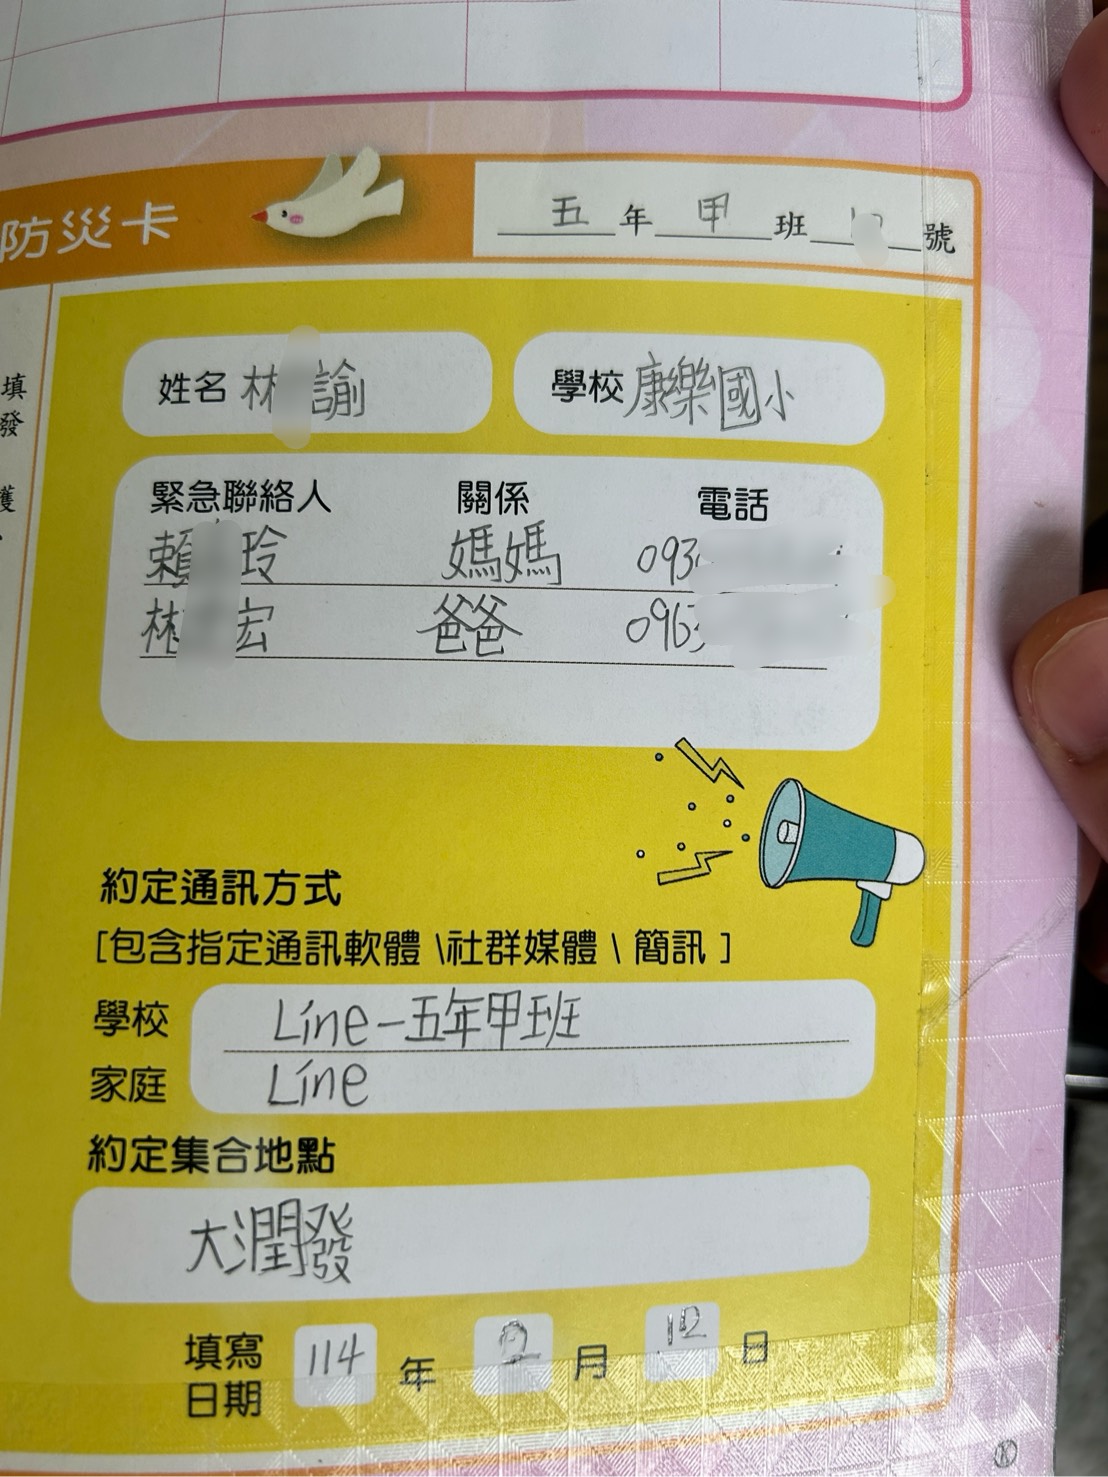 防災卡
五年甲班 號
填
發
護
姓名 林 諭
學校 康樂國小
緊急聯絡人 關係 電話
賴 玲 媽媽 093
林 宏 爸爸 096
約定通訊方式
[包含指定通訊軟體 \社群媒體 \ 簡訊 ]
學校 Line-五年甲班
家庭 Line
約定集合地點
大潤發
填寫日期 114 年 2 月 12 日